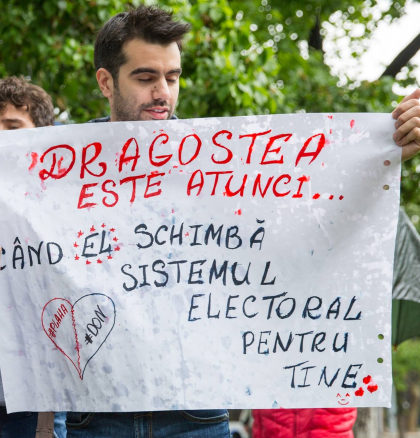 DRAGOSTEA
ESTE ATUNCI...
CÂND EL SCHIMBĂ
SISTEMUL
ELECTORAL
PENTRU
TINE
#PLAHA
#DON